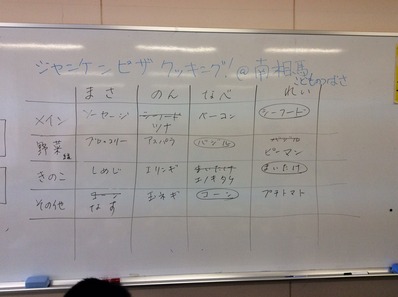 ジャンケンピザクッキング!@南相馬
こどものつばさ
まさ のん なべ れい
メイン ソーセージ シーフード ツナ ベーコン シーフード
野菜 ブロッコリー アスパラ バジル バジル ピーマン
きのこ しめじ エリンギ まいたけ エノキタケ まいたけ
その他 コーン なす 玉ネギ コーン プチトマト